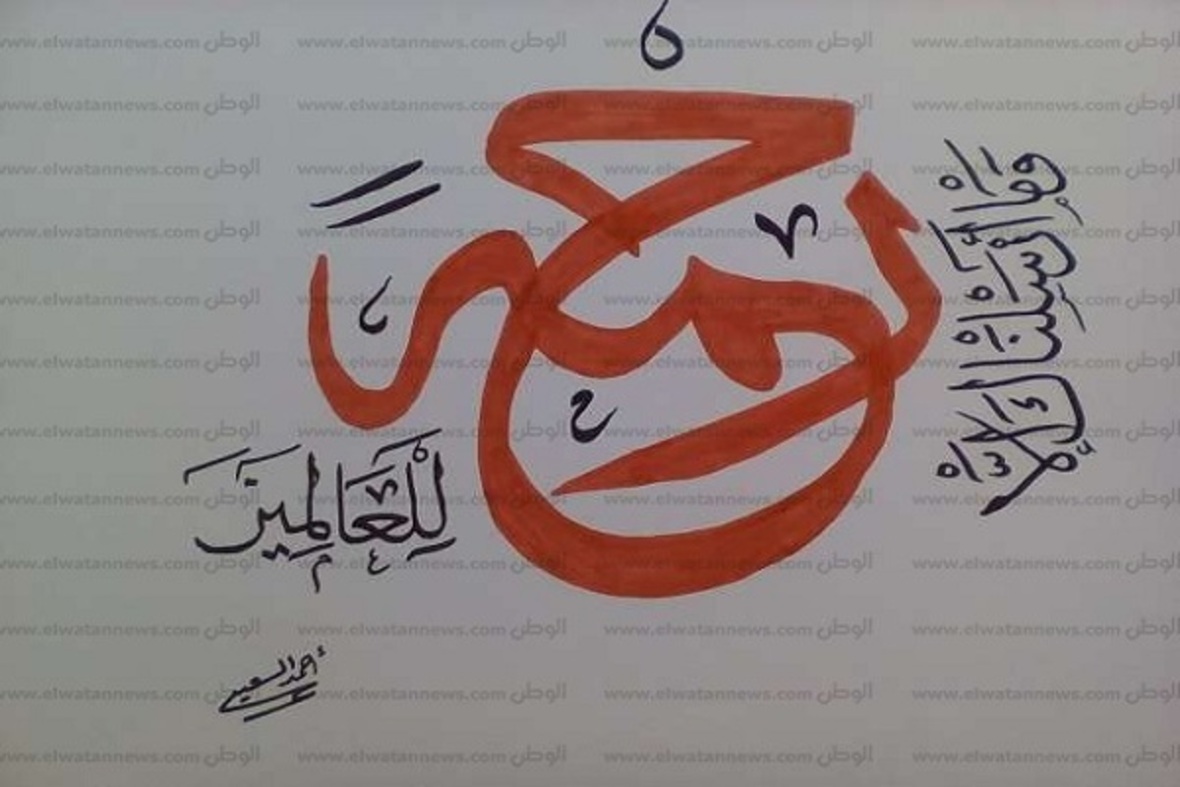 وَمَا أَرْسَلْنَاكَ إِلَّا
رَحْمَةً
لِلْعَالَمِينَ
أحمد السعيد
www.elwatannews.com الوطن